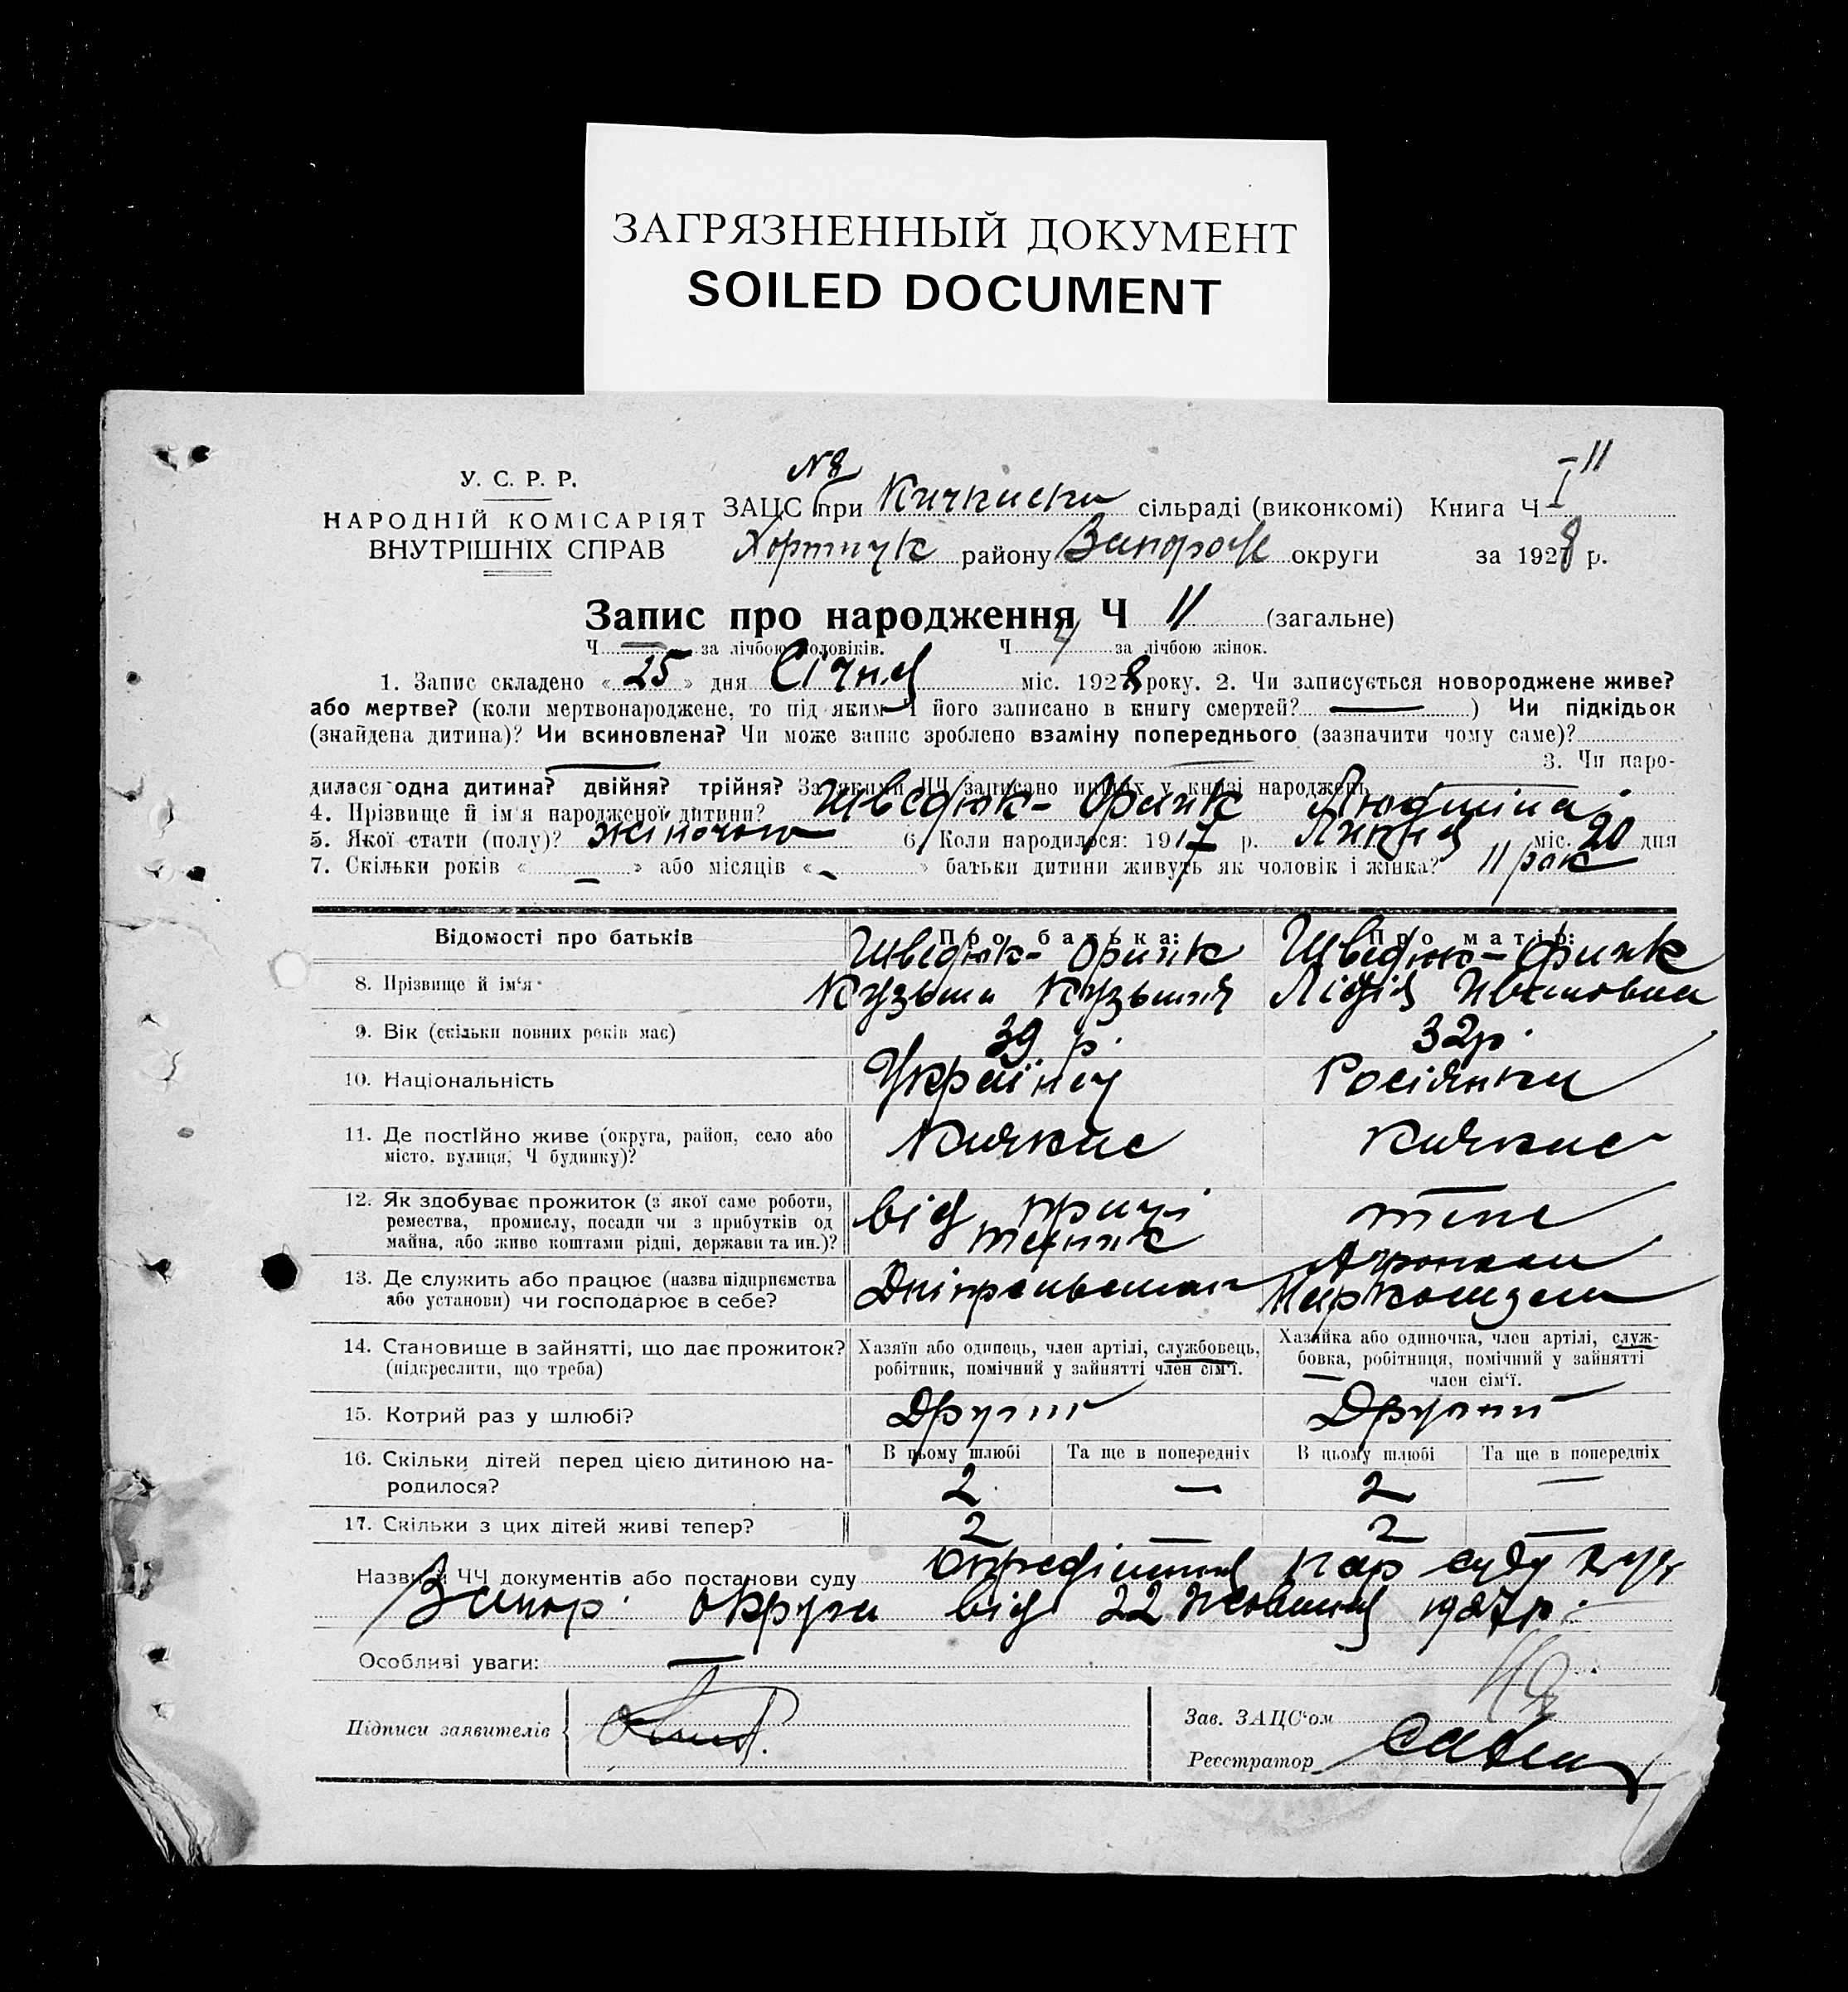 ЗАГРЯЗНЕННЫЙ ДОКУМЕНТ
SOILED DOCUMENT
№ 8
I-11
У. С. Р. Р.
НАРОДНІЙ КОМІСАРІЯТ
ВНУТРІШНІХ СПРАВ
ЗАЦС при Кичкаськ сільраді (виконкомі) Книга Ч
Хортицьк району Запоріж округи за 1928 р.
Запис про народження Ч 11 (загальне)
Ч — за лічбою чоловіків. Ч 4 за лічбою жінок.
1. Запис складено « 25 » дня Січня міс. 1928 року. 2. Чи записується новороджене живе?
або мертве? (коли мертвонароджене, то під яким Ч його записано в книгу смертей? — ) Чи підкідьок
(знайдена дитина)? Чи всиновлена? Чи може запис зроблено взаміну попереднього (зазначити чому саме)?
— — 3. Чи наро-
дилася одна дитина? двійня? трійня? За якими ЧЧ записано инших у книзі народжень —
4. Прізвище й ім'я народженої дитини? Шведюк- Людміла
5. Якої стати (полу)? жіночого 6. Коли народилося: 1917 р. Липня міс. 20 дня
7. Скільки років « — » або місяців « — » батьки дитини живуть як чоловік і жінка? 11 рок
Відомості про батьків Про батька: Про матір:
Шведюк- Шведюк-
8. Прізвище й ім'я Кузьма Лідія Ивановна
9. Вік (скільки повних років має) 39 р. 32 р.
10. Національність Українец Росіянка
11. Де постійно живе (округа, район, село або Кичкас Кичкас
місто, вулиця, Ч будинку)?
12. Як здобуває прожиток (з якої саме роботи, від праці
ремества, промислу, посади чи з прибутків од теж
майна, або живе коштами рідні, держави та ин.)? технік
13. Де служить або працює (назва підприємства Дніпрельстан
або установи) чи господарює в себе?
14. Становище в зайнятті, що дає прожиток? Хазяїн або одинець, член артілі, службовець, Хазяйка або одиночка, член артілі, служ-
(підкреслити, що треба) робітник, помічний у зайнятті член сім'ї. бовка, робітниця, помічний у зайнятті
член сім'ї.
15. Котрий раз у шлюбі? Другий Другий
16. Скільки дітей перед цією дитиною на- В цьому шлюбі Та ще в попередніх В цьому шлюбі Та ще в попередніх
родилося? 2 — 2 —
17. Скільки з цих дітей живі тепер? 2 — 2 —
Назви й ЧЧ документів або постанови суду нар суду
Запор. округи від 22 Жовтня 1927 р.
Особливі уваги: —
Підписи заявителів
Зав. ЗАЦС'ом
Реєстратор